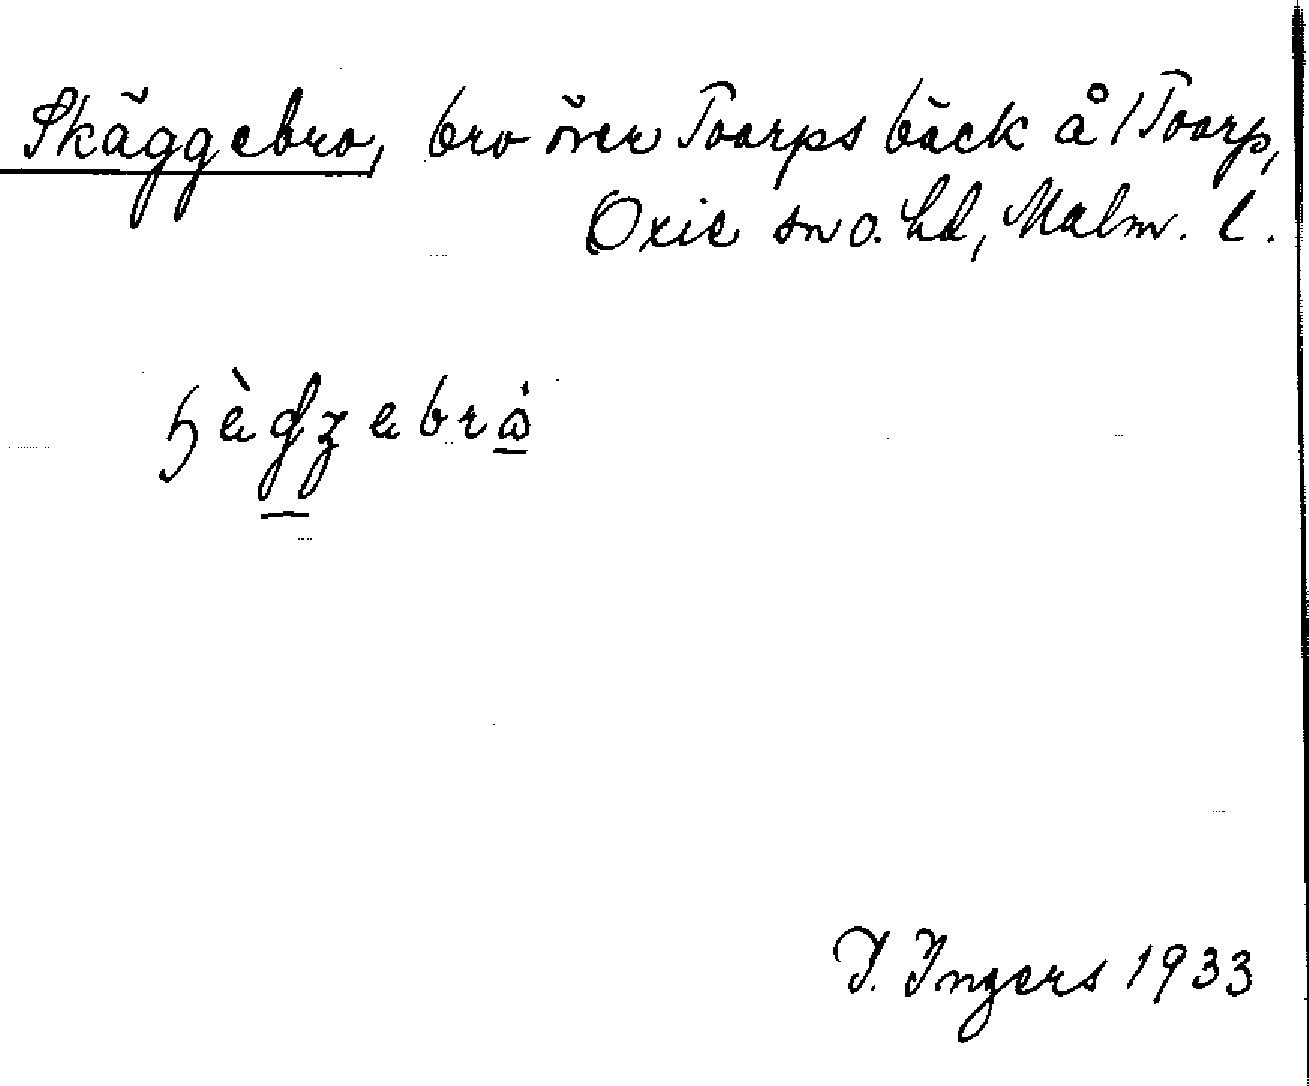 Skäggebro, bro över Toarps bäck å /Toarp,
Oxie sn o. hd, Malm. l.
I. Ingers 1933